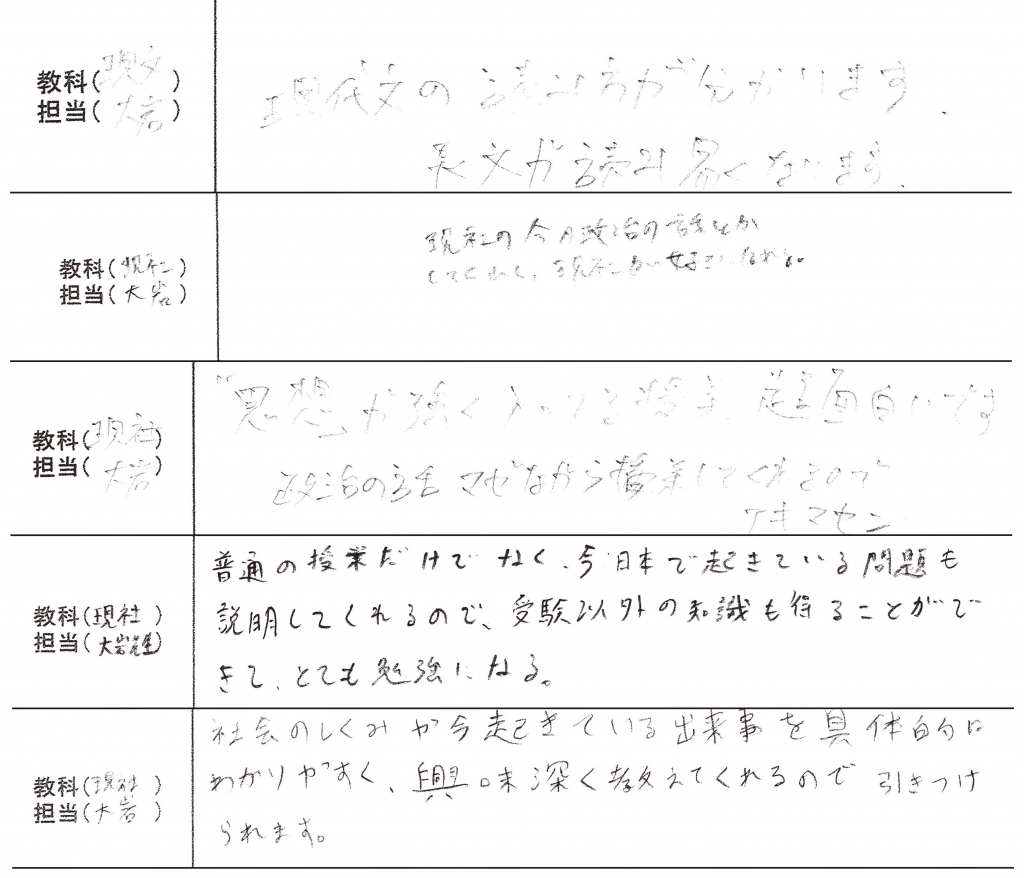 教科(現文)
担当(大岩)
現代文の読み方が分かります.
長文が読み易くなります.
教科(現社)
担当(大岩)
現社の今の政治の話とか
してくれるし、現社が好きになれる。
教科(現社)
担当(大岩)
"思想"が強く入ってる授業、超面白いです
政治の話マゼながら授業してくれるので
アキマセン
教科(現社)
担当(大岩先生)
普通の授業だけでなく、今日本で起きている問題も
説明してくれるので、受験以外の知識も得ることがで
きて、とても勉強になる。
教科(現社)
担当(大岩)
社会のしくみや今起きている出来事を具体的に
わかりやすく、興味深く教えてくれるので引きつけ
られます。